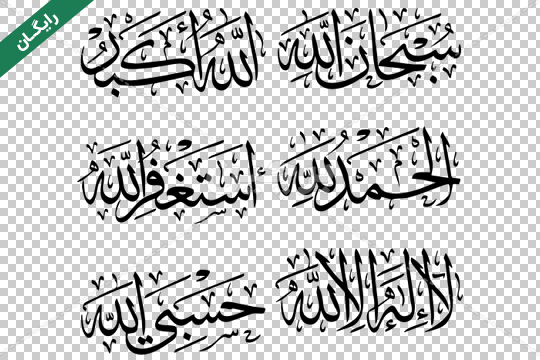 رایگان
سُبْحَانَ اللّٰه
اللّٰهُ أَكْبَر
الْحَمْدُ لِلّٰه
أَسْتَغْفِرُ اللّٰه
لَا إِلٰهَ إِلَّا اللّٰه
حَسْبِيَ اللّٰه